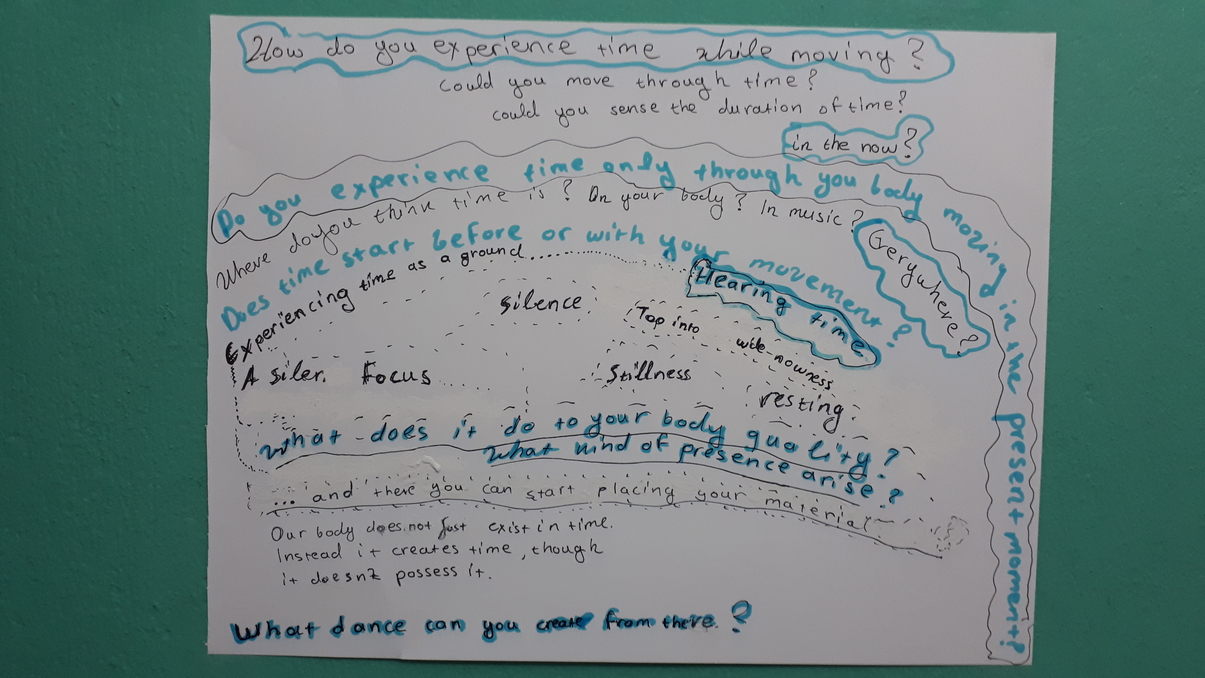 How do you experience time while moving?
Could you move through time?
could you sense the duration of time?
in the now?
Do you experience time only through you body moving in the present moment?
Where do you think time is? On your body? In music?
Everywhere?
Does time start before or with your movement?
Experiencing time as a ground........
Hearing time
silence
Tap into
wide nowness
A siler. Focus
Stillness
resting.
What does it do to your body quality?
What kind of presence arise?
... and there you can start placing your material
Our body does not just exist in time.
Instead it creates time, though
it doesnt possess it.
What dance can you create from there?